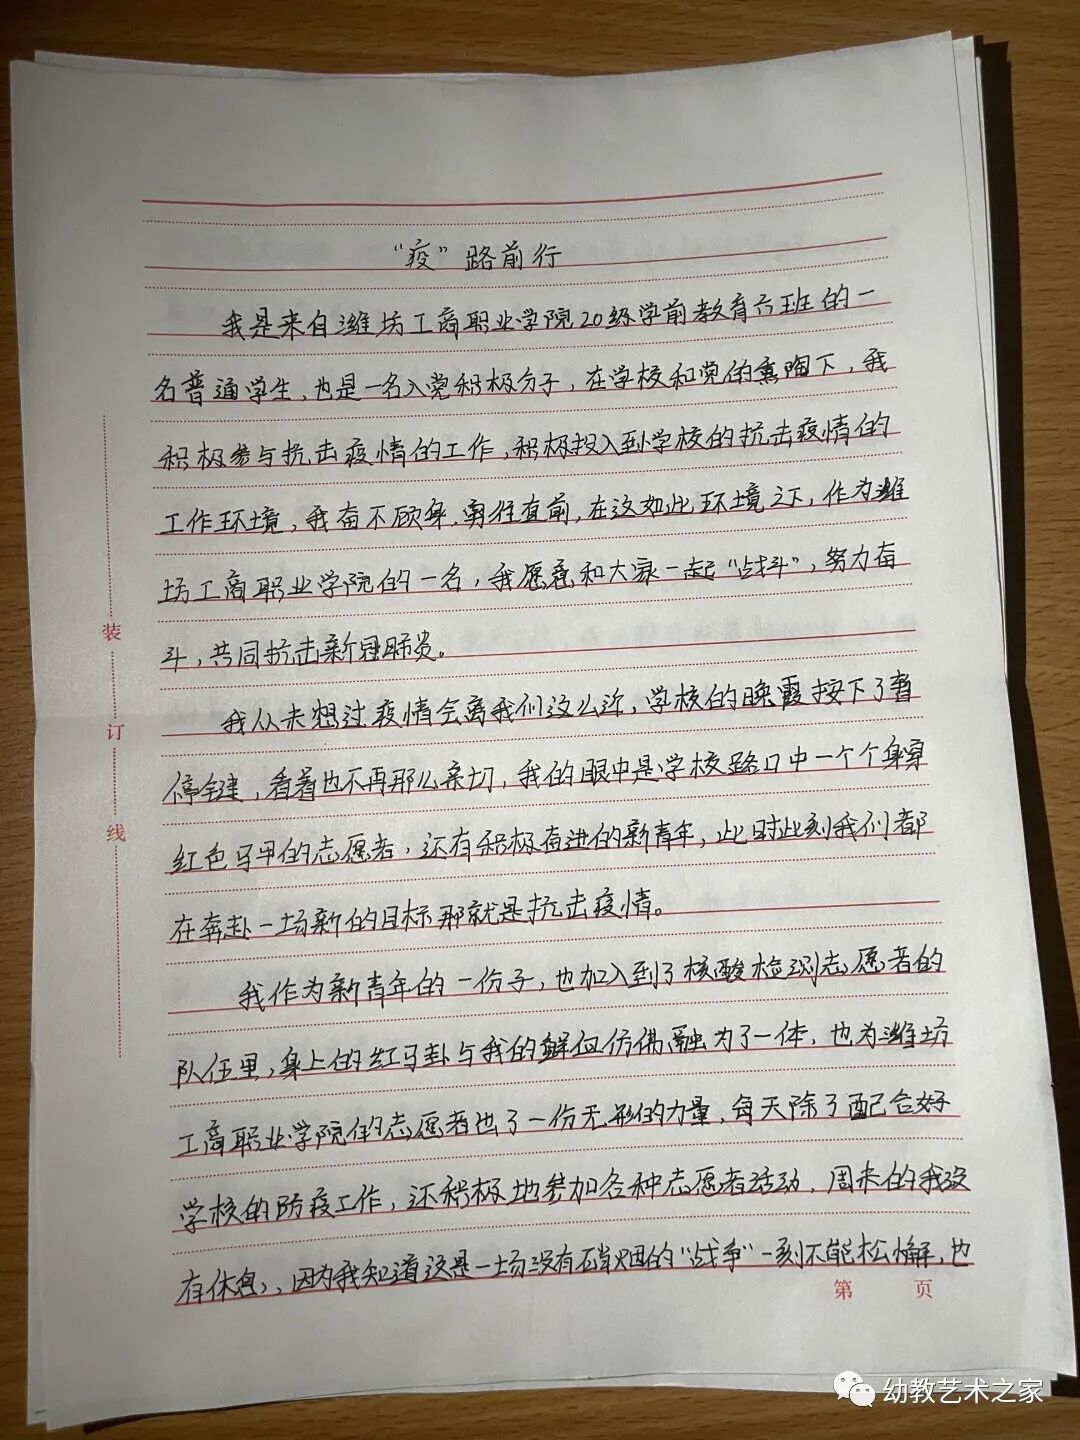 “疫”路前行
我是来自潍坊工商职业学院20级学前教育六班的一
名普通学生，也是一名入党积极分子，在学校和党的熏陶下，我
积极参与抗击疫情的工作，积极投入到学校的抗击疫情的
工作环境，我奋不顾身，勇往直前，在这如此环境之下，作为潍
坊工商职业学院的一名，我愿意和大家一起“战斗”，努力奋
斗，共同抗击新冠肺炎。
我从未想过疫情会离我们这么近，学校的晚霞按下了暂
停键，看着也不再那么亲切，我的眼中是学校路口中一个个身穿
红色马甲的志愿者，还有积极奋进的新青年，此时此刻我们都
在奔赴一场新的目标那就是抗击疫情。
我作为新青年的一份子，也加入到了核酸检测志愿者的
队伍里，身上的红马卦与我的鲜血仿佛融为了一体，也为潍坊
工商职业学院的志愿者出了一份无形的力量，每天除了配合好
学校的防疫工作，还积极地参加各种志愿者活动，周末的我没
有休息，因为我知道这是一场没有硝烟的“战争”一刻不能松懈，也
装
订
线
第 页
幼教艺术之家